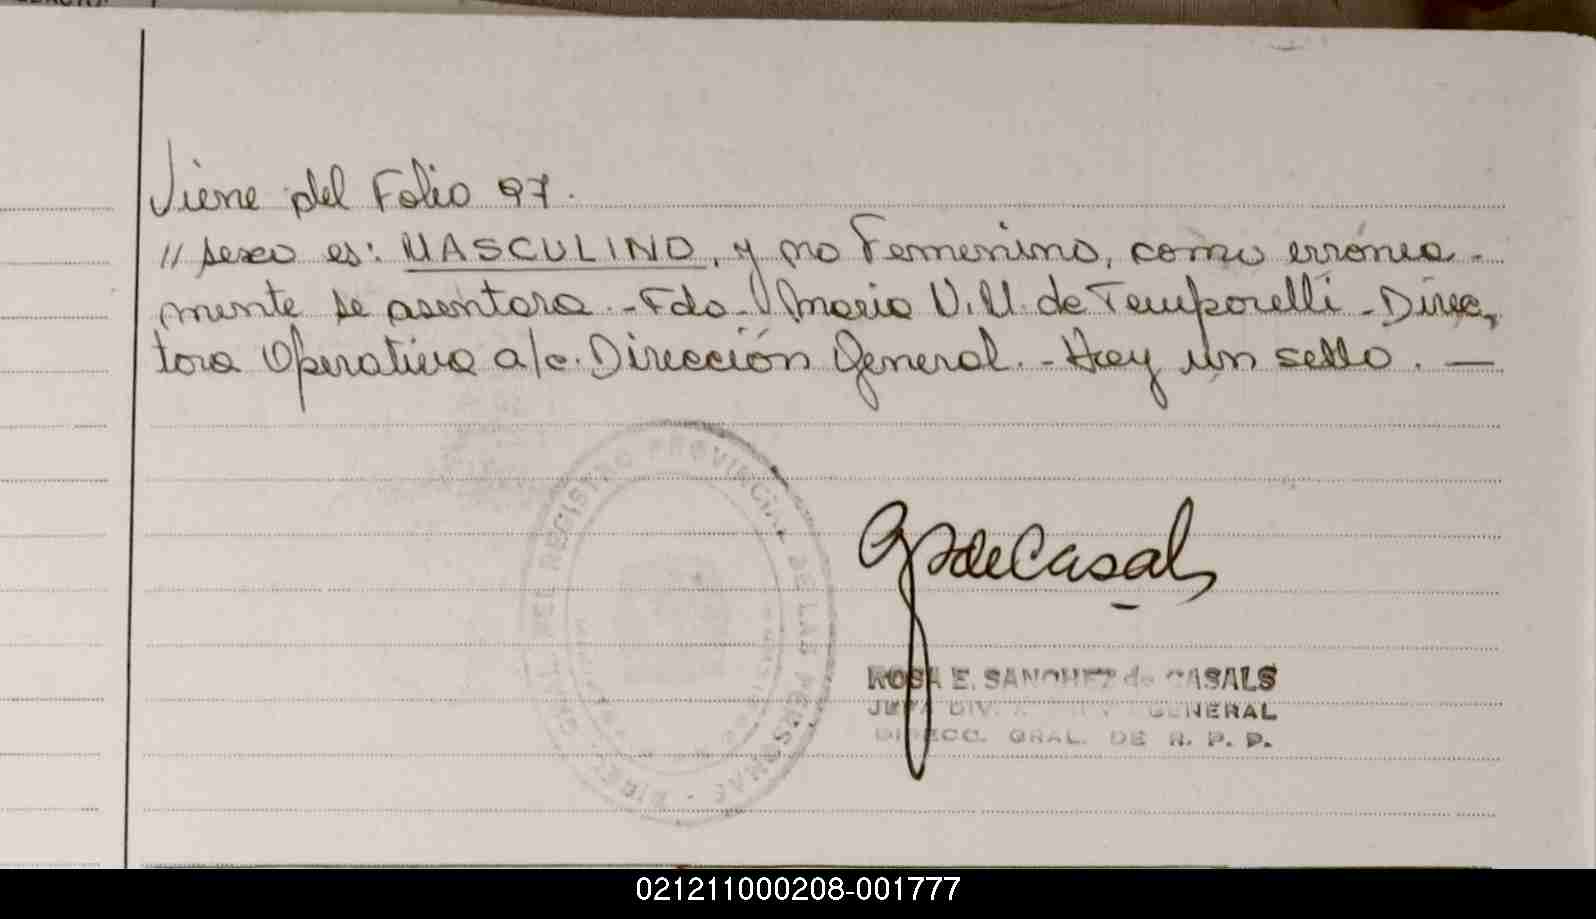 Viene del Folio 97.
// sexo es: MASCULINO, y no Femenino, como errónea-
mente se asentara.-Fdo-Maria V.V. de Temporelli-Direc,
tora Operativa a/c. Dirección General.-Hay un sello.—
DIREC. GRAL. DEL REGISTRO PROVINCIAL DE LAS PERSONAS -
deCasals
ROSA E. SANCHEZ de CASALS
JEFA DIV. GENERAL
DIRECC. GRAL. DE R. P. P.
021211000208-001777